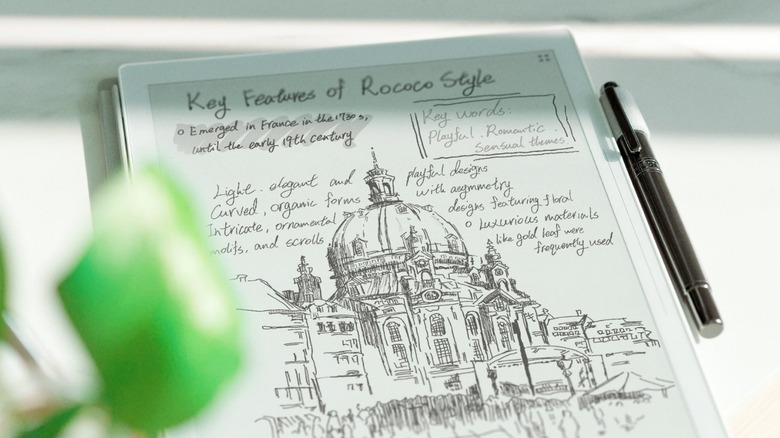 Key Features of Rococo Style
Emerged in France in the 1730s,
until the early 19th century
Key words:
Playful . Romantic .
Sensual themes.
Light, elegant and
Curved, organic forms
Intricate, ornamental
motifs, and scrolls
playful designs
with asymmetry
designs featuring floral
Luxurious materials
like gold leaf were
frequently used